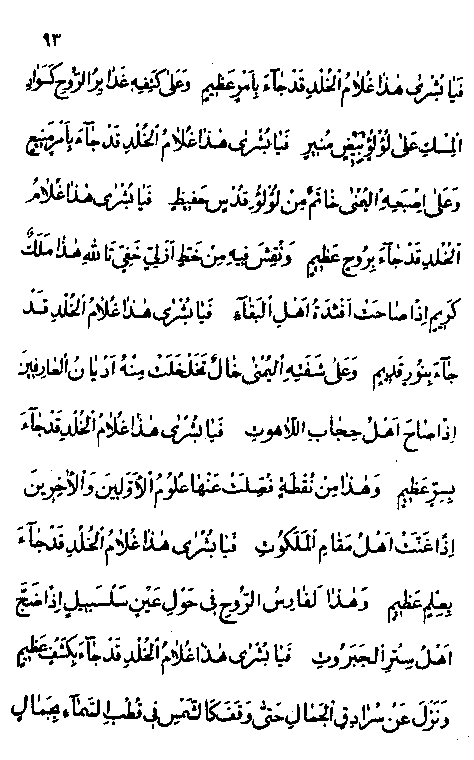 ٩٣
فَيَا بُشْرىٰ هٰذَا غُلَامُ الْخُلْدِ قَدْ جَآءَ بِأَمْرٍ عَظِيمٍ وَعَلىٰ كَتِفِهِ غَدَايِرُ الرُّوحِ كَسَوَادِ
الْمِسْكِ عَلىٰ لُؤْلُؤِ بِيْضٍ مُنِيرٍ فَيَا بُشْرىٰ هٰذَا غُلَامُ الْخُلْدِ قَدْ جَآءَ بِأَمْرٍ مَنِيعٍ
وَعَلىٰ اِصْبَعِهِ الْيُمْنىٰ خَاتَمٌ مِنْ لُؤْلُؤِ قُدْسٍ حَفِيظٍ فَيَا بُشْرىٰ هٰذَا غُلَامُ
الْخُلْدِ قَدْ جَآءَ بِرُوحٍ عَظِيمٍ وَنُقِشَ فِيهِ مِنْ خَطٍّ اَزَلِيٍّ خَفِيٍّ تَاللهِ هٰذَا مَلَكٌ
كَرِيمٌ اِذًا صَاحَتْ اَفْئِدَةُ اَهْلِ الْبَقَآءِ فَيَا بُشْرىٰ هٰذَا غُلَامُ الْخُلْدِ قَدْ
جَآءَ بِنُورٍ قَدِيمٍ وَعَلىٰ شَفَتِهِ الْيُمْنىٰ خَالٌ تَخَلْخَلَتْ مِنْهُ اَدْيَانُ الْعَارِفِينَ
اِذًا صَاحَ اَهْلُ حِجَابِ اللَّاهُوتِ فَيَا بُشْرىٰ هٰذَا غُلَامُ الْخُلْدِ قَدْ جَآءَ
بِسِرٍّ عَظِيمٍ وَهٰذَا مِنْ نُقْطَةٍ فُصِّلَتْ عَنْهَا عُلُومُ الْاَوَّلِينَ وَالْآخِرِينَ
اِذًا غَنَّتْ اَهْلُ مَقَامِ الْمَلَكُوتِ فَيَا بُشْرىٰ هٰذَا غُلَامُ الْخُلْدِ قَدْ جَآءَ
بِعِلْمٍ عَظِيمٍ وَهٰذَا لَفَارِسُ الرُّوحِ فِي حَوْلِ عَيْنٍ سَلْسَبِيلٍ اِذًا ضَجَّ
اَهْلُ سِتْرِ الْجَبَرُوتِ فَيَا بُشْرىٰ هٰذَا غُلَامُ الْخُلْدِ قَدْ جَآءَ بِكَشْفٍ عَظِيمٍ
وَنَزَلَ عَنْ سُرَادِقِ الْجَمَالِ حَتّىٰ وَقَفَ كَالشَّمْسِ فِي قُطْبِ السَّمَآءِ بِجَمَالٍ